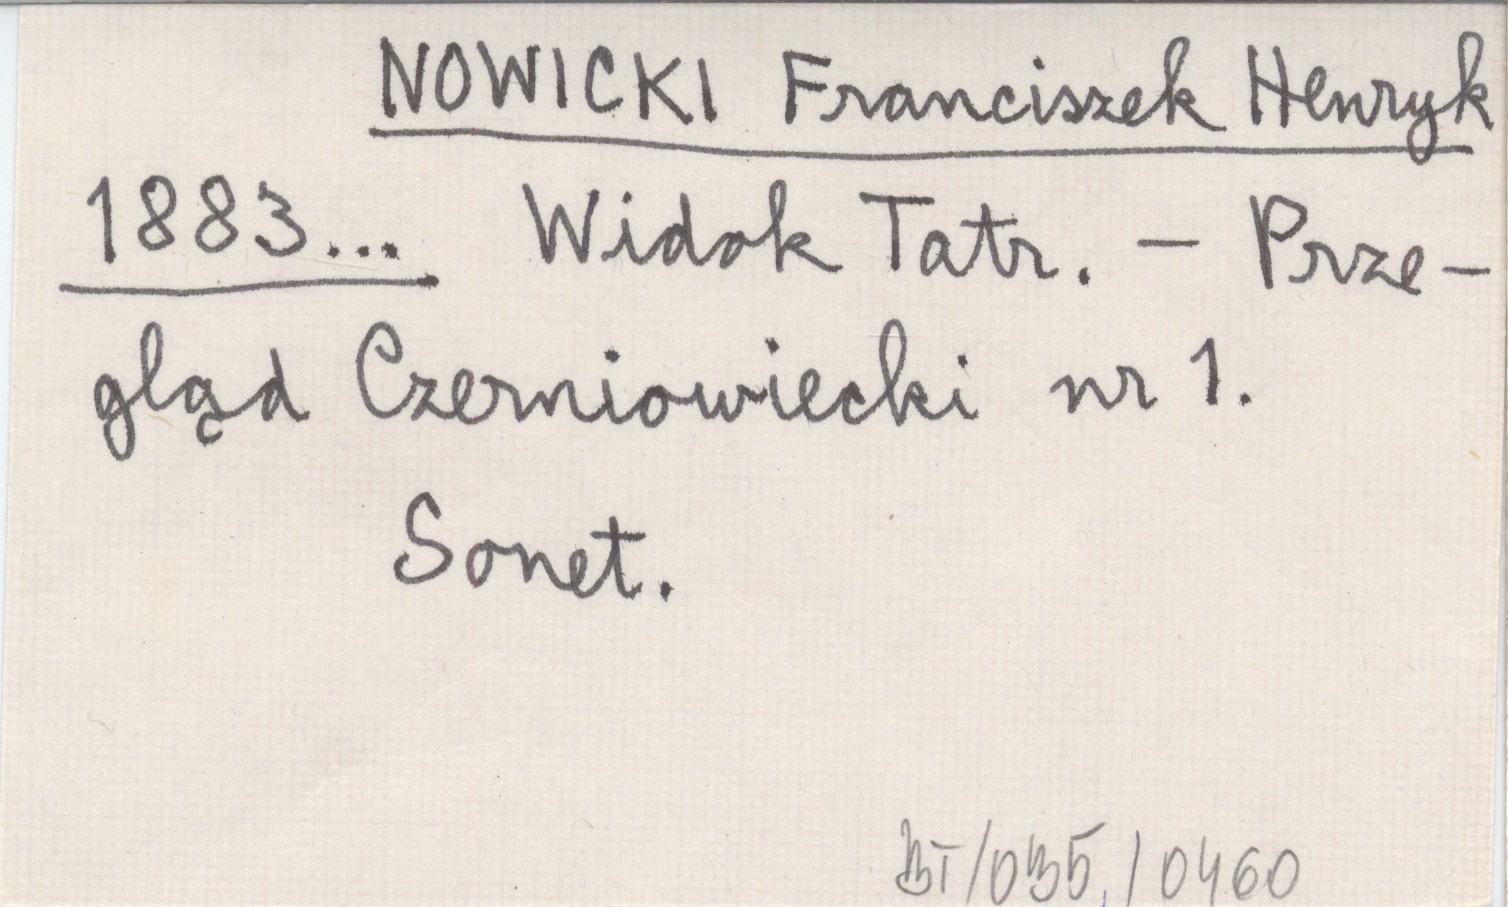 NOWICKI Franciszek Henryk
1883... Widok Tatr. – Prze-
gląd Czerniowiecki nr 1.
Sonet.
BT/035/0460